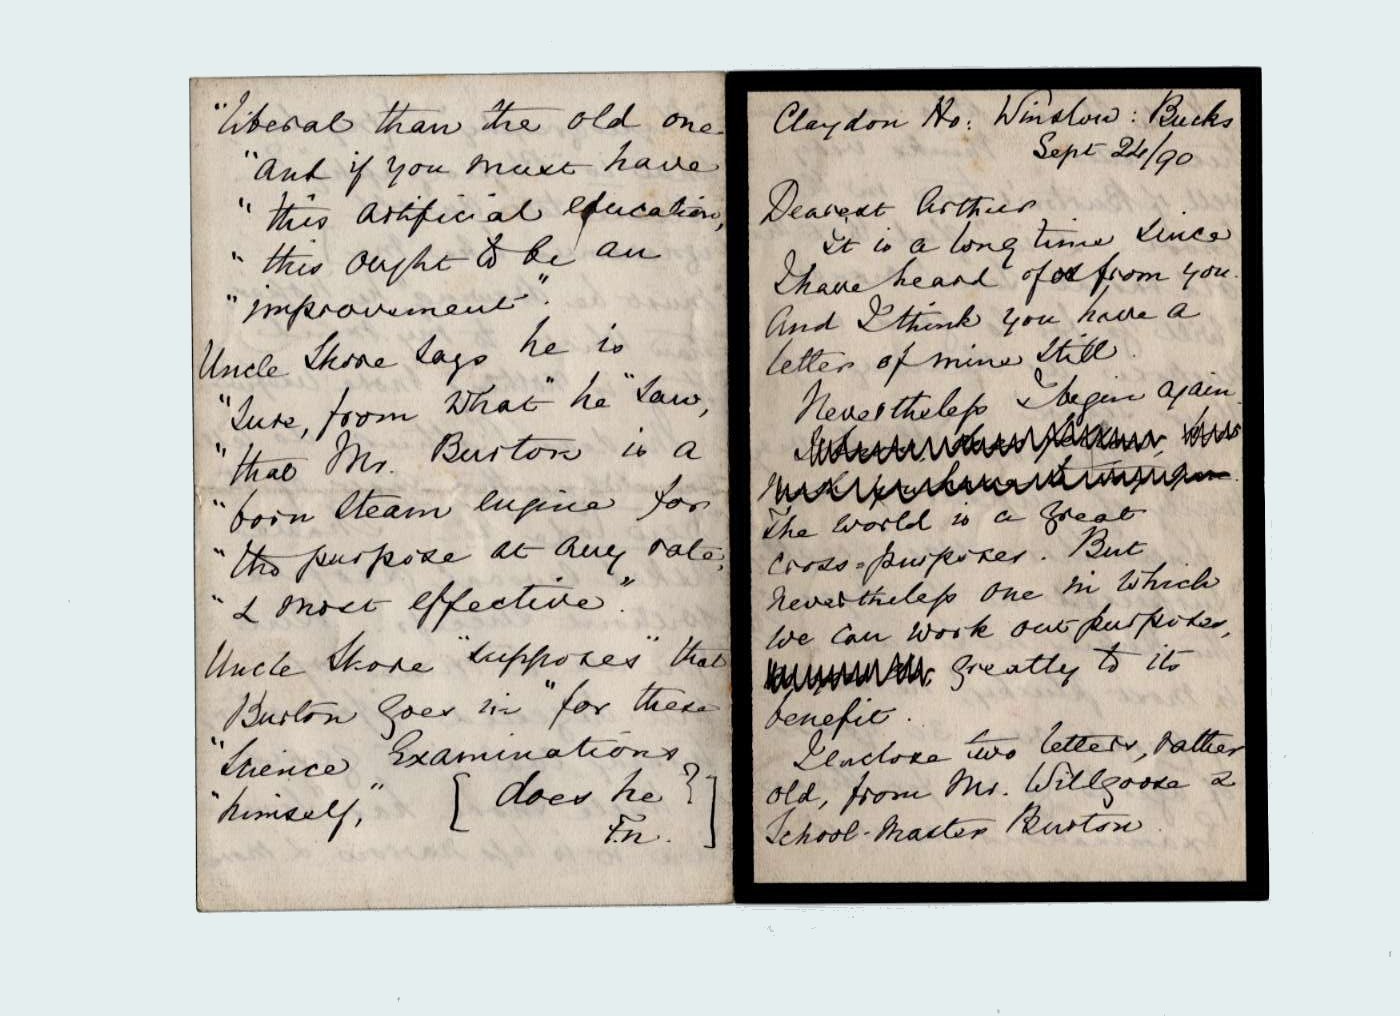 Claydon Ho: Winslow: Bucks
Sept 24/90
Dearest Arthur
It is a long time since
I have heard of or from you.
And I think you have a
letter of mine still.
Nevertheless I begin again.
The world is a great
cross-purposes. But
nevertheless one in which
we can work out purposes,
greatly to its
benefit.
I enclose two letters, rather
old, from Mr. Willgoose &
School-Master Burton
"liberal than the old one.
"And if you must have
"this artificial education,
"this ought to be an
"improvement".
Uncle Shore says he is
"sure, from what" he "saw,
"that Mr. Burton is a
"born steam engine for
"the purpose at any rate,
"& most effective".
Uncle Shore "supposes" that
Burton goes in "for these
"Science Examinations
"himself," [does he?]
F.N.